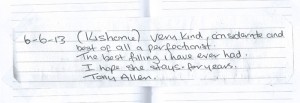 6-6-13. (Kishomi) very kind, considerate and
best of all a perfectionist.
The best filling i have ever had.
I hope she stays for years.
Tony Allen.